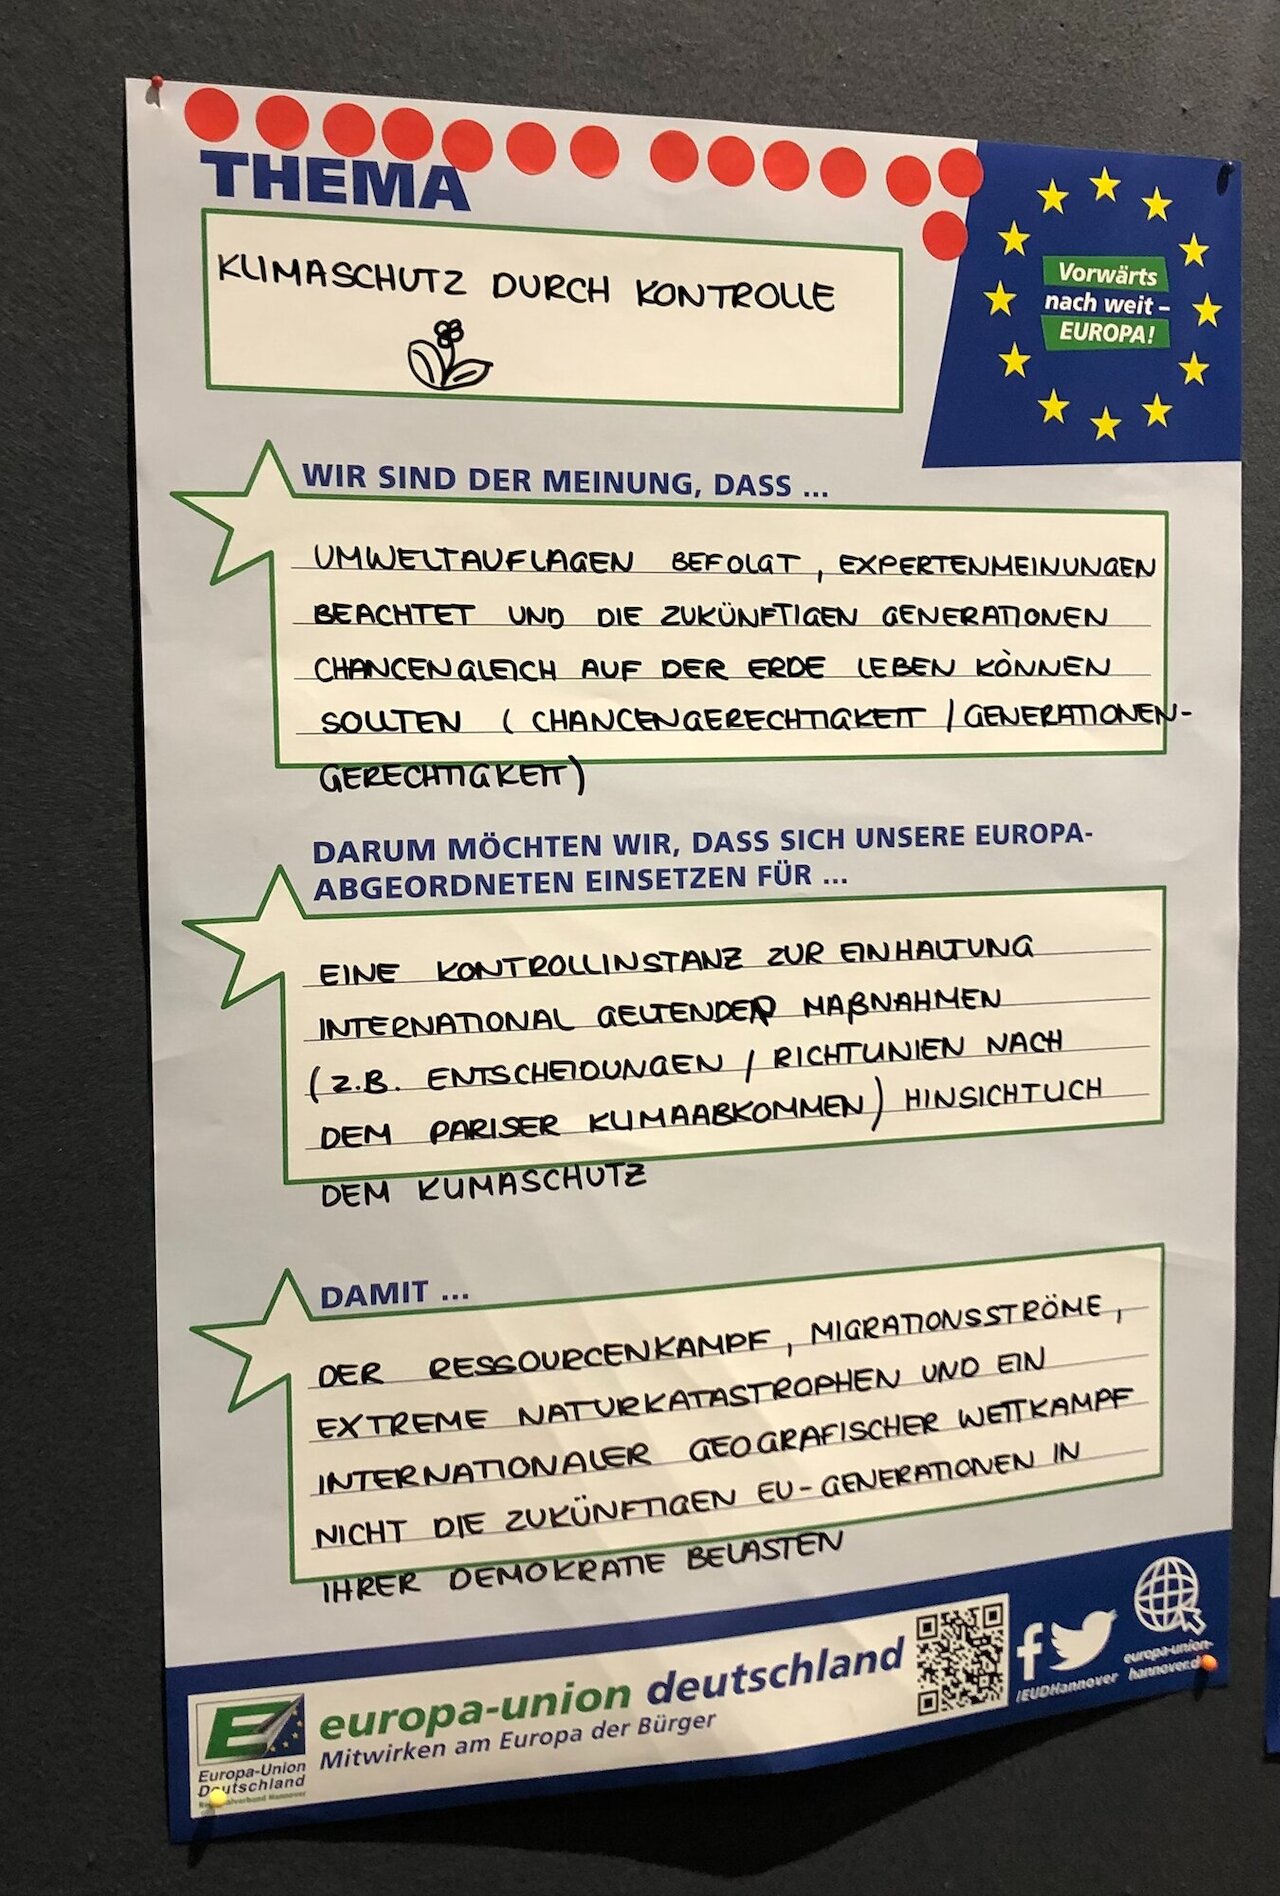 THEMA
KLIMASCHUTZ DURCH KONTROLLE
Vorwärts
nach weit –
EUROPA!
WIR SIND DER MEINUNG, DASS ...
UMWELTAUFLAGEN BEFOLGT, EXPERTENMEINUNGEN
BEACHTET UND DIE ZUKÜNFTIGEN GENERATIONEN
CHANCENGLEICH AUF DER ERDE LEBEN KÖNNEN
SOLLTEN (CHANCENGERECHTIGKEIT / GENERATIONEN-
GERECHTIGKEIT)
DARUM MÖCHTEN WIR, DASS SICH UNSERE EUROPA-
ABGEORDNETEN EINSETZEN FÜR ...
EINE KONTROLLINSTANZ ZUR EINHALTUNG
INTERNATIONAL GELTENDER MAßNAHMEN
(Z.B. ENTSCHEIDUNGEN / RICHTLINIEN NACH
DEM PARISER KLIMAABKOMMEN) HINSICHTLICH
DEM KLIMASCHUTZ
DAMIT ...
DER RESSOURCENKAMPF, MIGRATIONSSTRÖME,
EXTREME NATURKATASTROPHEN UND EIN
INTERNATIONALER GEOGRAFISCHER WETTKAMPF
NICHT DIE ZUKÜNFTIGEN EU-GENERATIONEN IN
IHRER DEMOKRATIE BELASTEN
europa-union deutschland
Mitwirken am Europa der Bürger
Europa-Union
Deutschland
Regionalverband Hannover
/EUDHannover
europa-union-
hannover.de